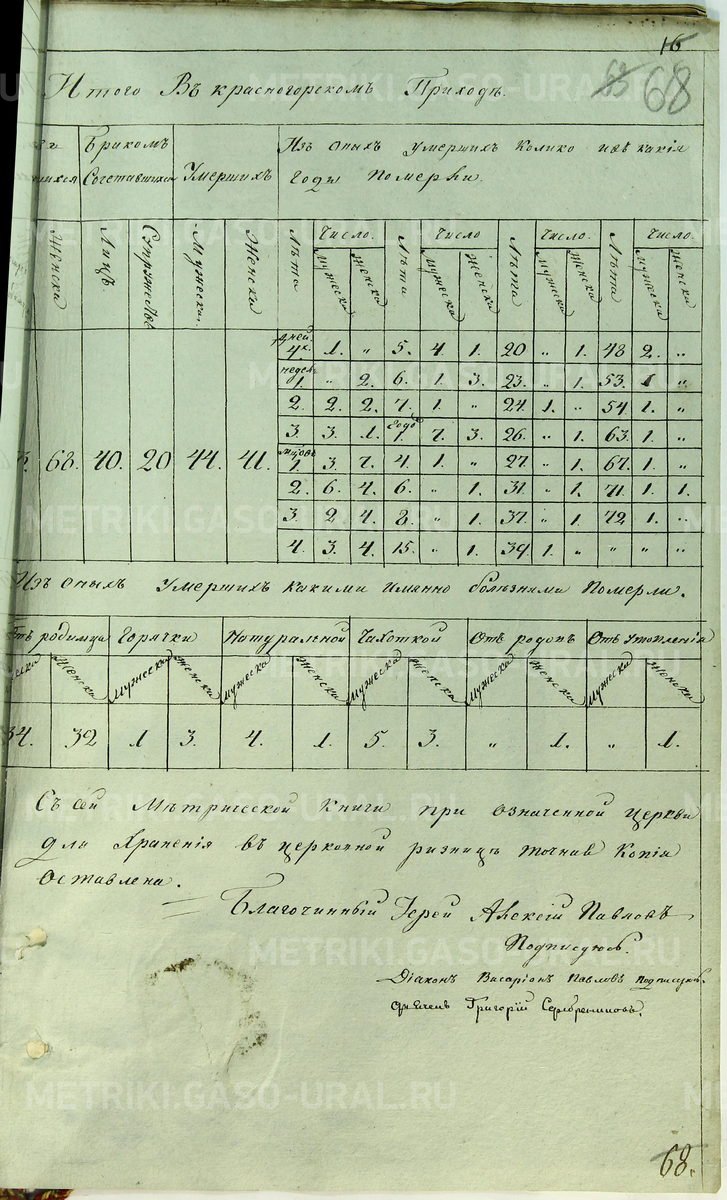 16
63 68
Итого Въ красногорскомъ Приходѣ.
Бракомъ Сочетавшихся
Умершихъ
Изъ оныхъ умершихъ Колико и въ какія
Годы Померли.
Женска Лицъ. Супружествъ Мужеска. Женска Лѣта Число. Лѣта Число Лѣта Число. Лѣта Число.
Мужеска Женска Мужеска Женска Мужеска Женска Мужеска Женска
дней 4х. 1. „ 5. 4. 1. 20 „ 1. 48 2. „
недел. 1. „ 2. 6. 1. 3. 23. „ 1. 53. 1 „
2. 2. 2. 7. 1. „ 24. 1. „ 54. 1. „
3. 3. 1. Годъ 1. 7. 3. 26. „ 1. 63. 1. „
68. 40. 20 44. 41. 1. 3. 7. 4. 1. „ 27. „ 1. 67. 1. „
2. 6. 4. 6. „ 1. 31. „ 1. 71. 1. 1.
3. 2 4. 8. „ 1. 37. „ 1. 72. 1. „
4. 3. 4. 15. „ 1. 39. 1. „ „ „ „
Изъ оныхъ Умершихъ какими имянно болѣзнями Померли.
Отъ родимца Горячки Натуральной Чахоткой Отъ родовъ Отъ Утопленія
Женска Мужеска Женска Мужеска Женска Мужеска Женска Мужеска Женска Мужеска Женска
34. 32 1 3. 4. 1. 5. 3. „ 1. „ 1.
Съ сей Мѣтрической Книги при означенной церкви
для Храненія въ церковной ризницѣ точная Копія
Оставлена.
Благочинный Іерей Алексій Павловъ
Подписуюсь.
Діаконъ Висаріонъ Павловъ подписуюсь.
Григорій Серебренниковъ.
68.
METRIKI.GASO-URAL.RU